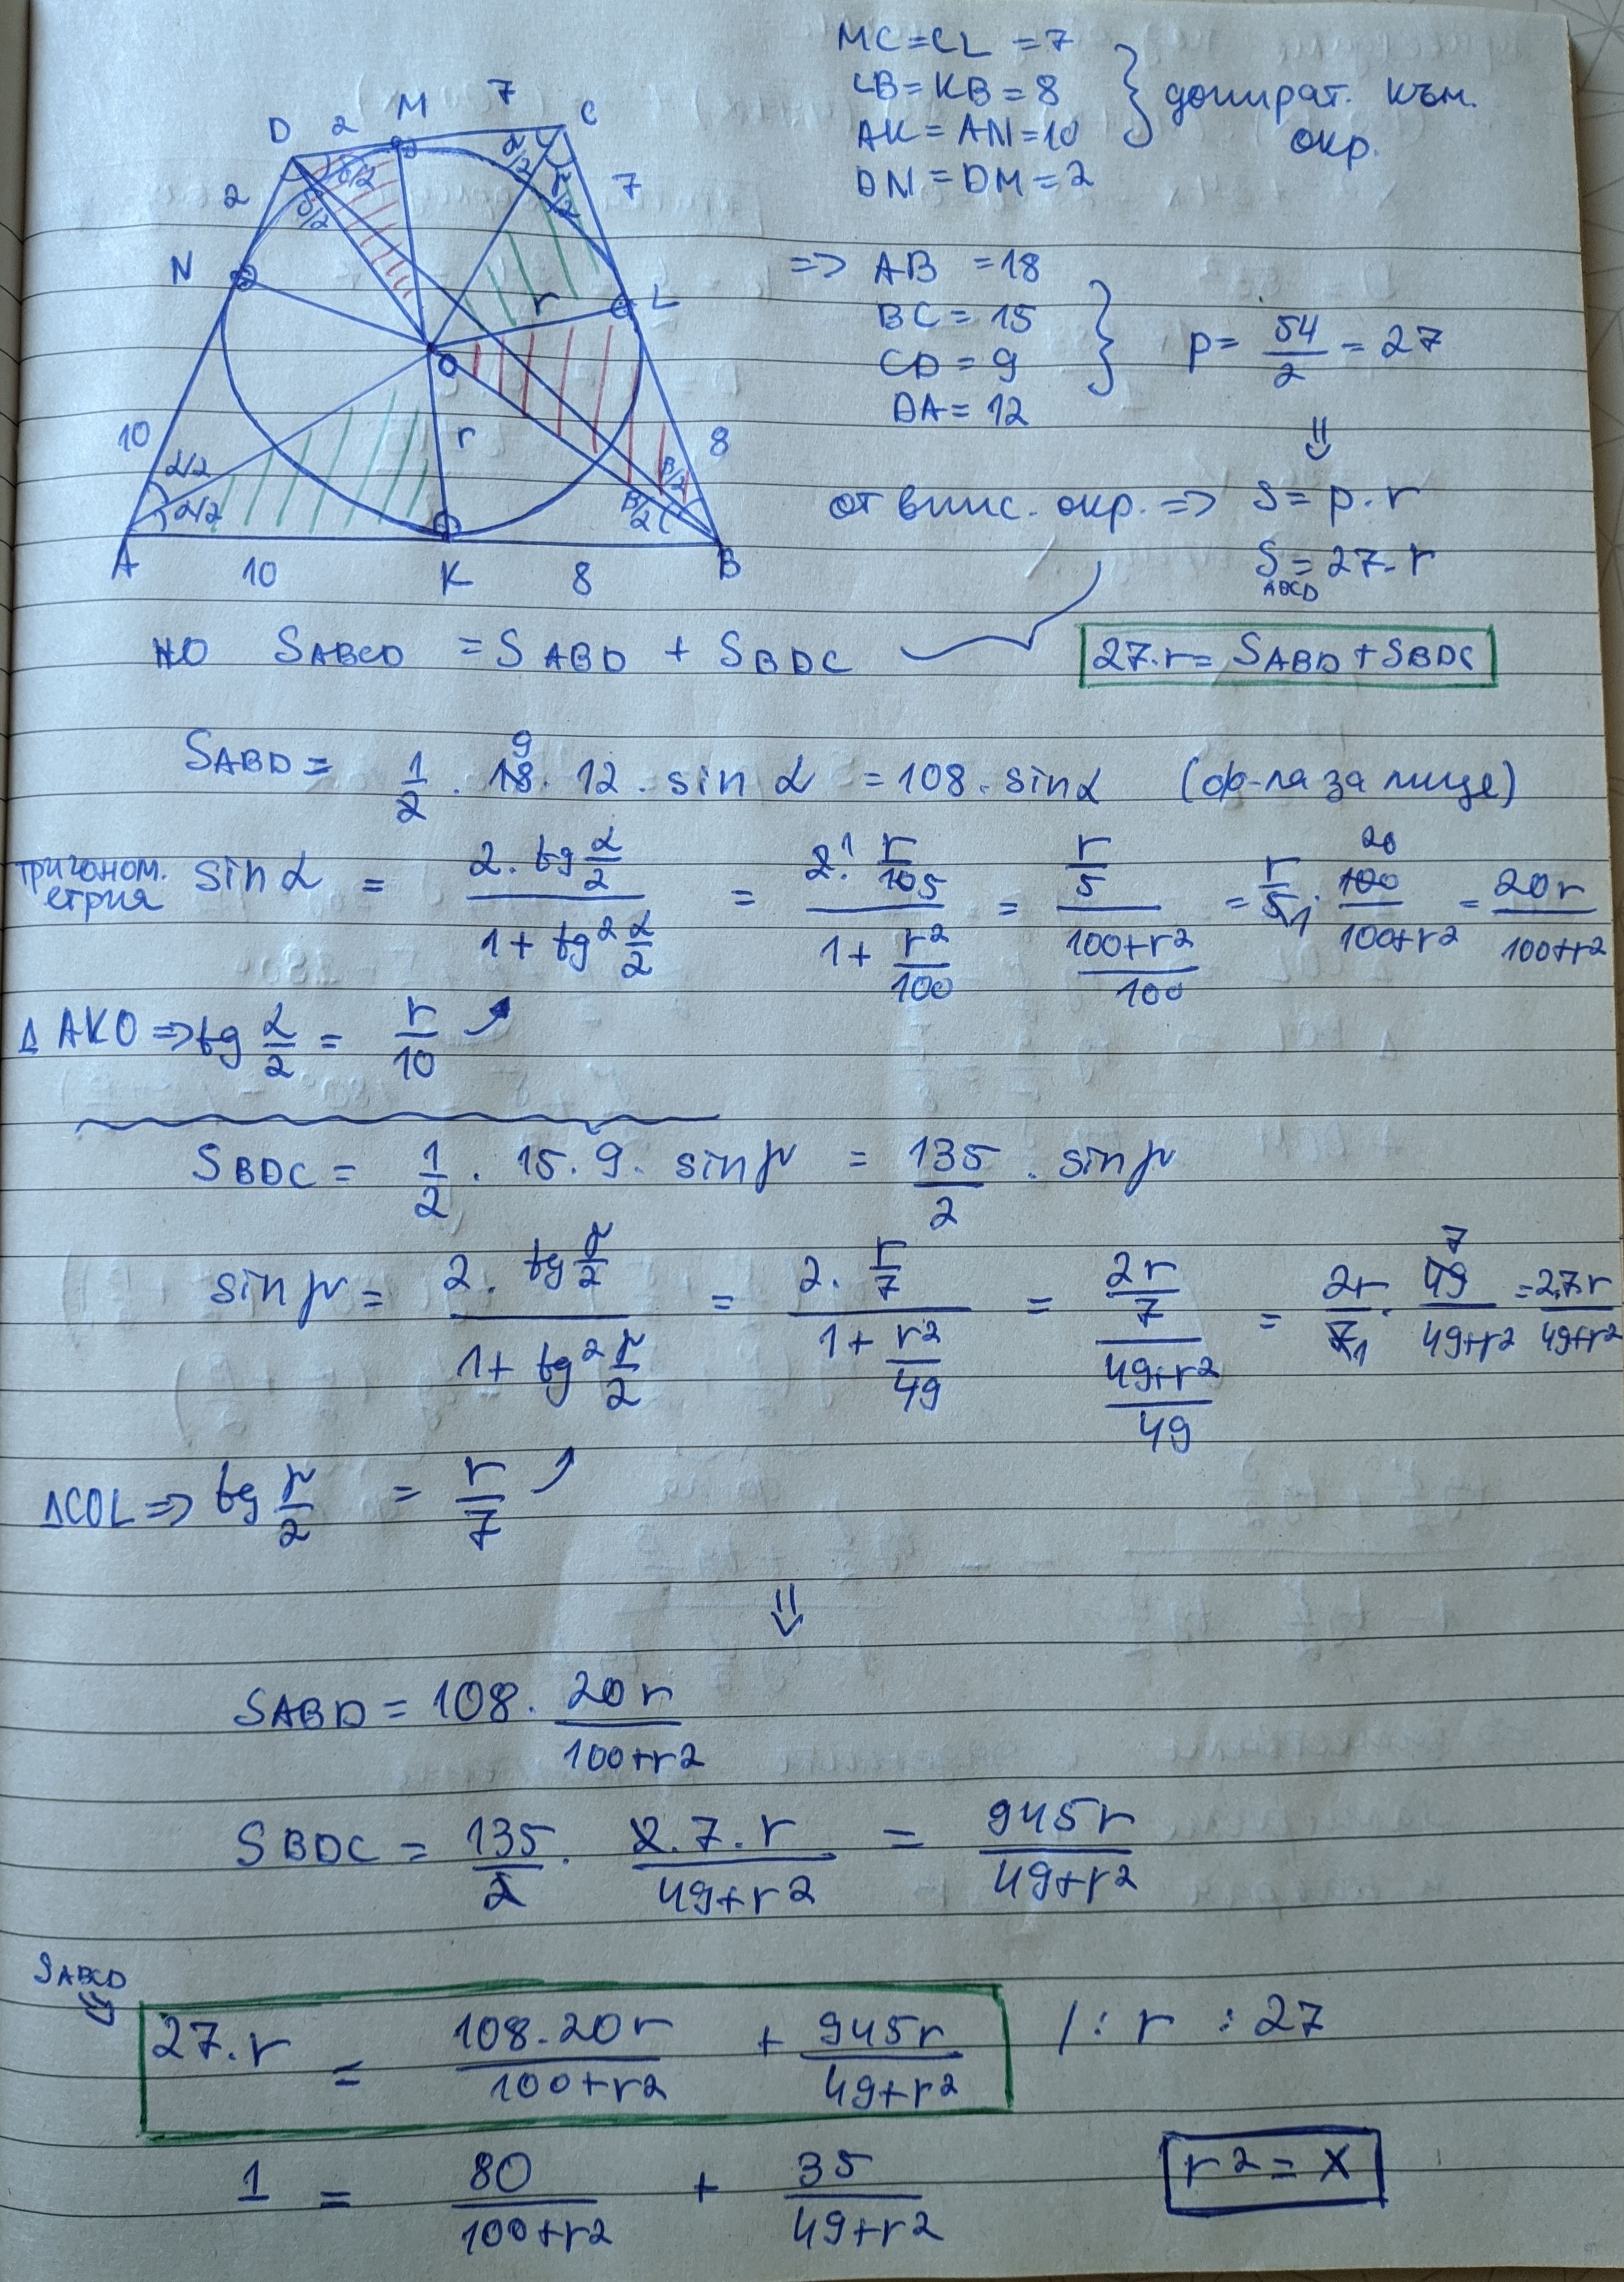 MC = CL = 7
LB = KB = 8
AK = AN = 10
DN = DM = 2
} допират. към. окр.
D 2 M 7 C
2 δ/2 δ/2 γ/2 γ/2 7
N r L
O
10 r 8
α/2 α/2 β/2 β/2
A 10 K 8 B
=> AB = 18
BC = 15
CD = 9
DA = 12
} p = 54/2 = 27
⇓
от впис. окр. => S = p.r
S ABCD = 27.r
но S ABCD = S ABD + S BDC
27.r = S ABD + S BDC
S ABD = 1/2 . 18 9 . 12 . sin α = 108 . sin α (ф-ла за лице)
тригоном. етрия sin α = (2 . tg α/2)/(1 + tg² α/2) = (2 1 . r/10 5)/(1 + r²/100) = (r/5)/((100+r²)/100) = r/5 1 . 100 20/(100+r²) = 20r/(100+r²)
Δ AKO => tg α/2 = r/10
S BDC = 1/2 . 15 . 9 . sin γ = 135/2 . sin γ
sin γ = (2 . tg γ/2)/(1 + tg² γ/2) = (2 . r/7)/(1 + r²/49) = (2r/7)/((49+r²)/49) = 2r/7 1 . 49 7/(49+r²) = 2.7.r/(49+r²)
Δ COL => tg γ/2 = r/7
⇓
S ABD = 108 . 20r/(100+r²)
S BDC = 135/2 . 2.7.r/(49+r²) = 945r/(49+r²)
S ABCD
27.r = 108.20r/(100+r²) + 945r/(49+r²) / : r : 27
1 = 80/(100+r²) + 35/(49+r²) r² = x